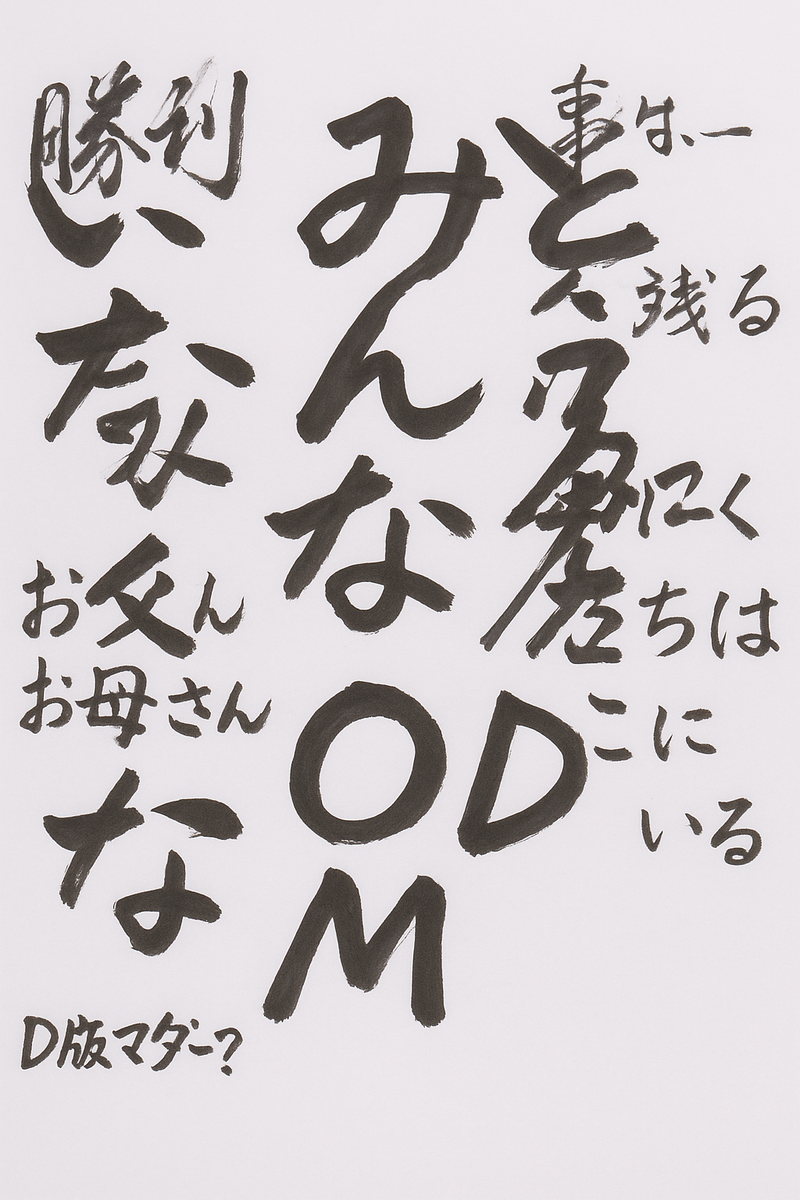 事は、一
と
残る
にく
ちは
こに
いる
D
みんな
OM
勝利
い
な
お父ん
お母さん
な
D版マダー?